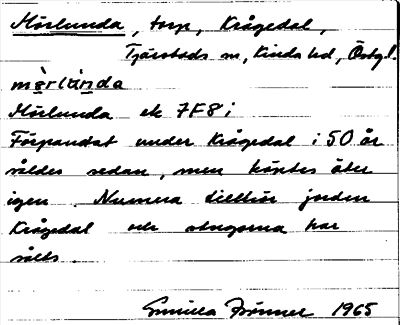 Mörlunda, torp, Krågedal,
Tjärstads sn, Kinda hd, Östgl.
mö̀rlùnda
Mörlunda ek 7F8i
Förpantat under Krågedal i 50 år
såldes sedan, men köptes åter
igen. Numera tillhör jorden
Krågedal och stugorna har
sålts.
Gunilla 1965